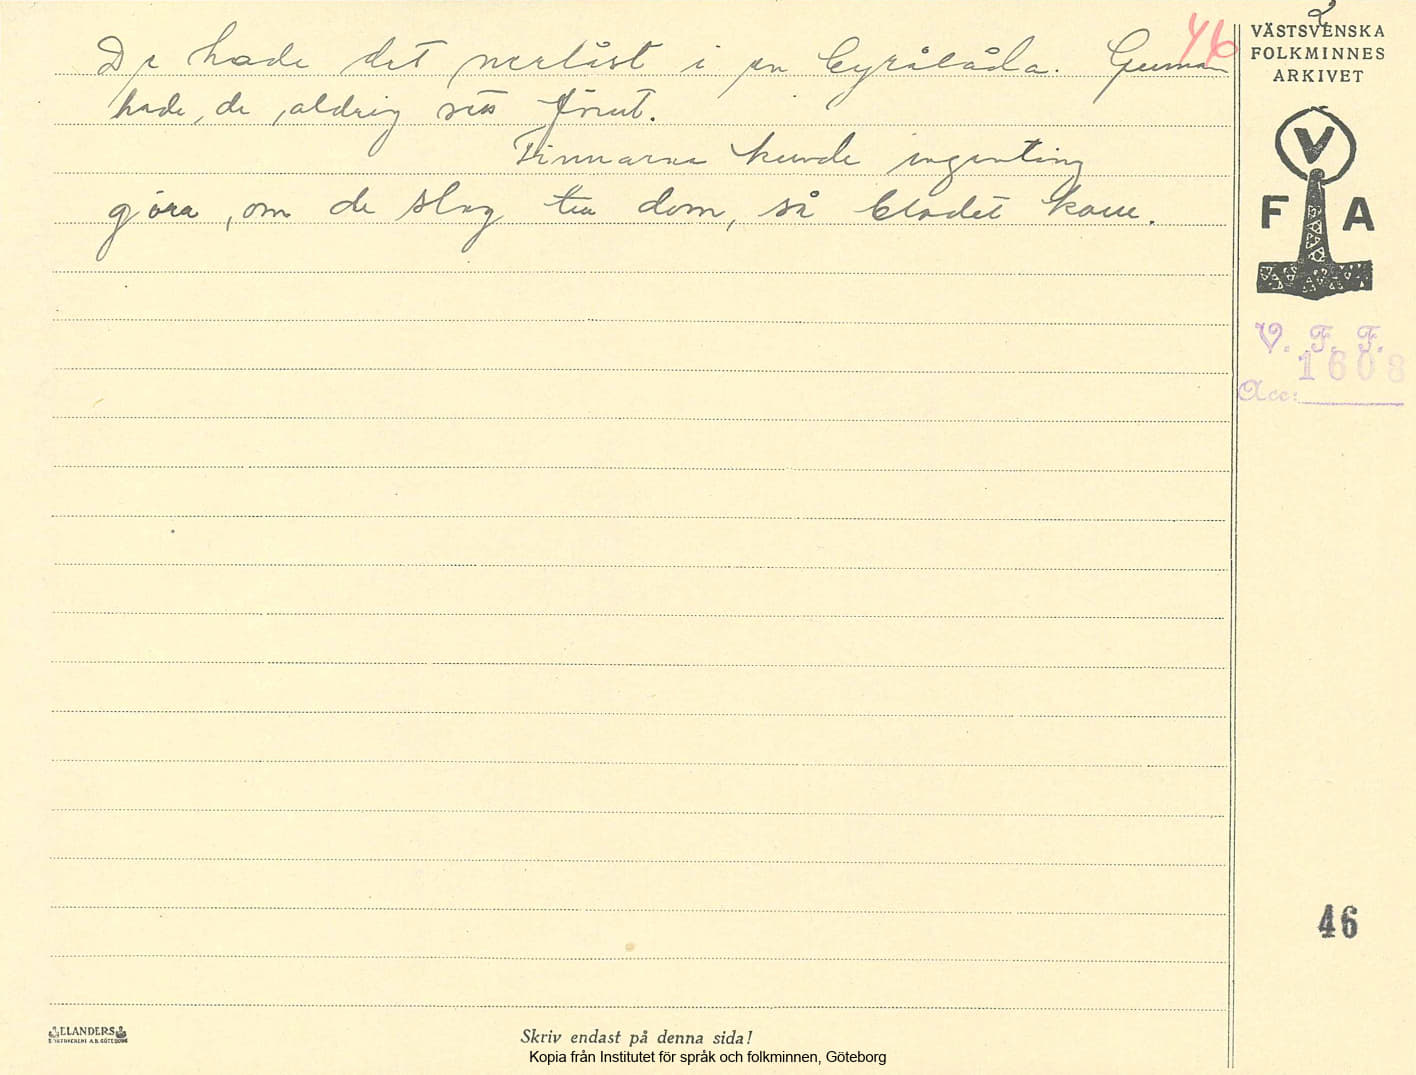 2
46
VÄSTSVENSKA
FOLKMINNES
ARKIVET
De hade det nerlåst i en byrålåda. Gumman
hade, de aldrig sett förut.
Finnarna kunde ingenting
göra, om de slog till dom, så blodet kom.
V
F A
V. F. F.
1608
Acc:
46
ELANDERS
Skriv endast på denna sida!
Kopia från Institutet för språk och folkminnen, Göteborg